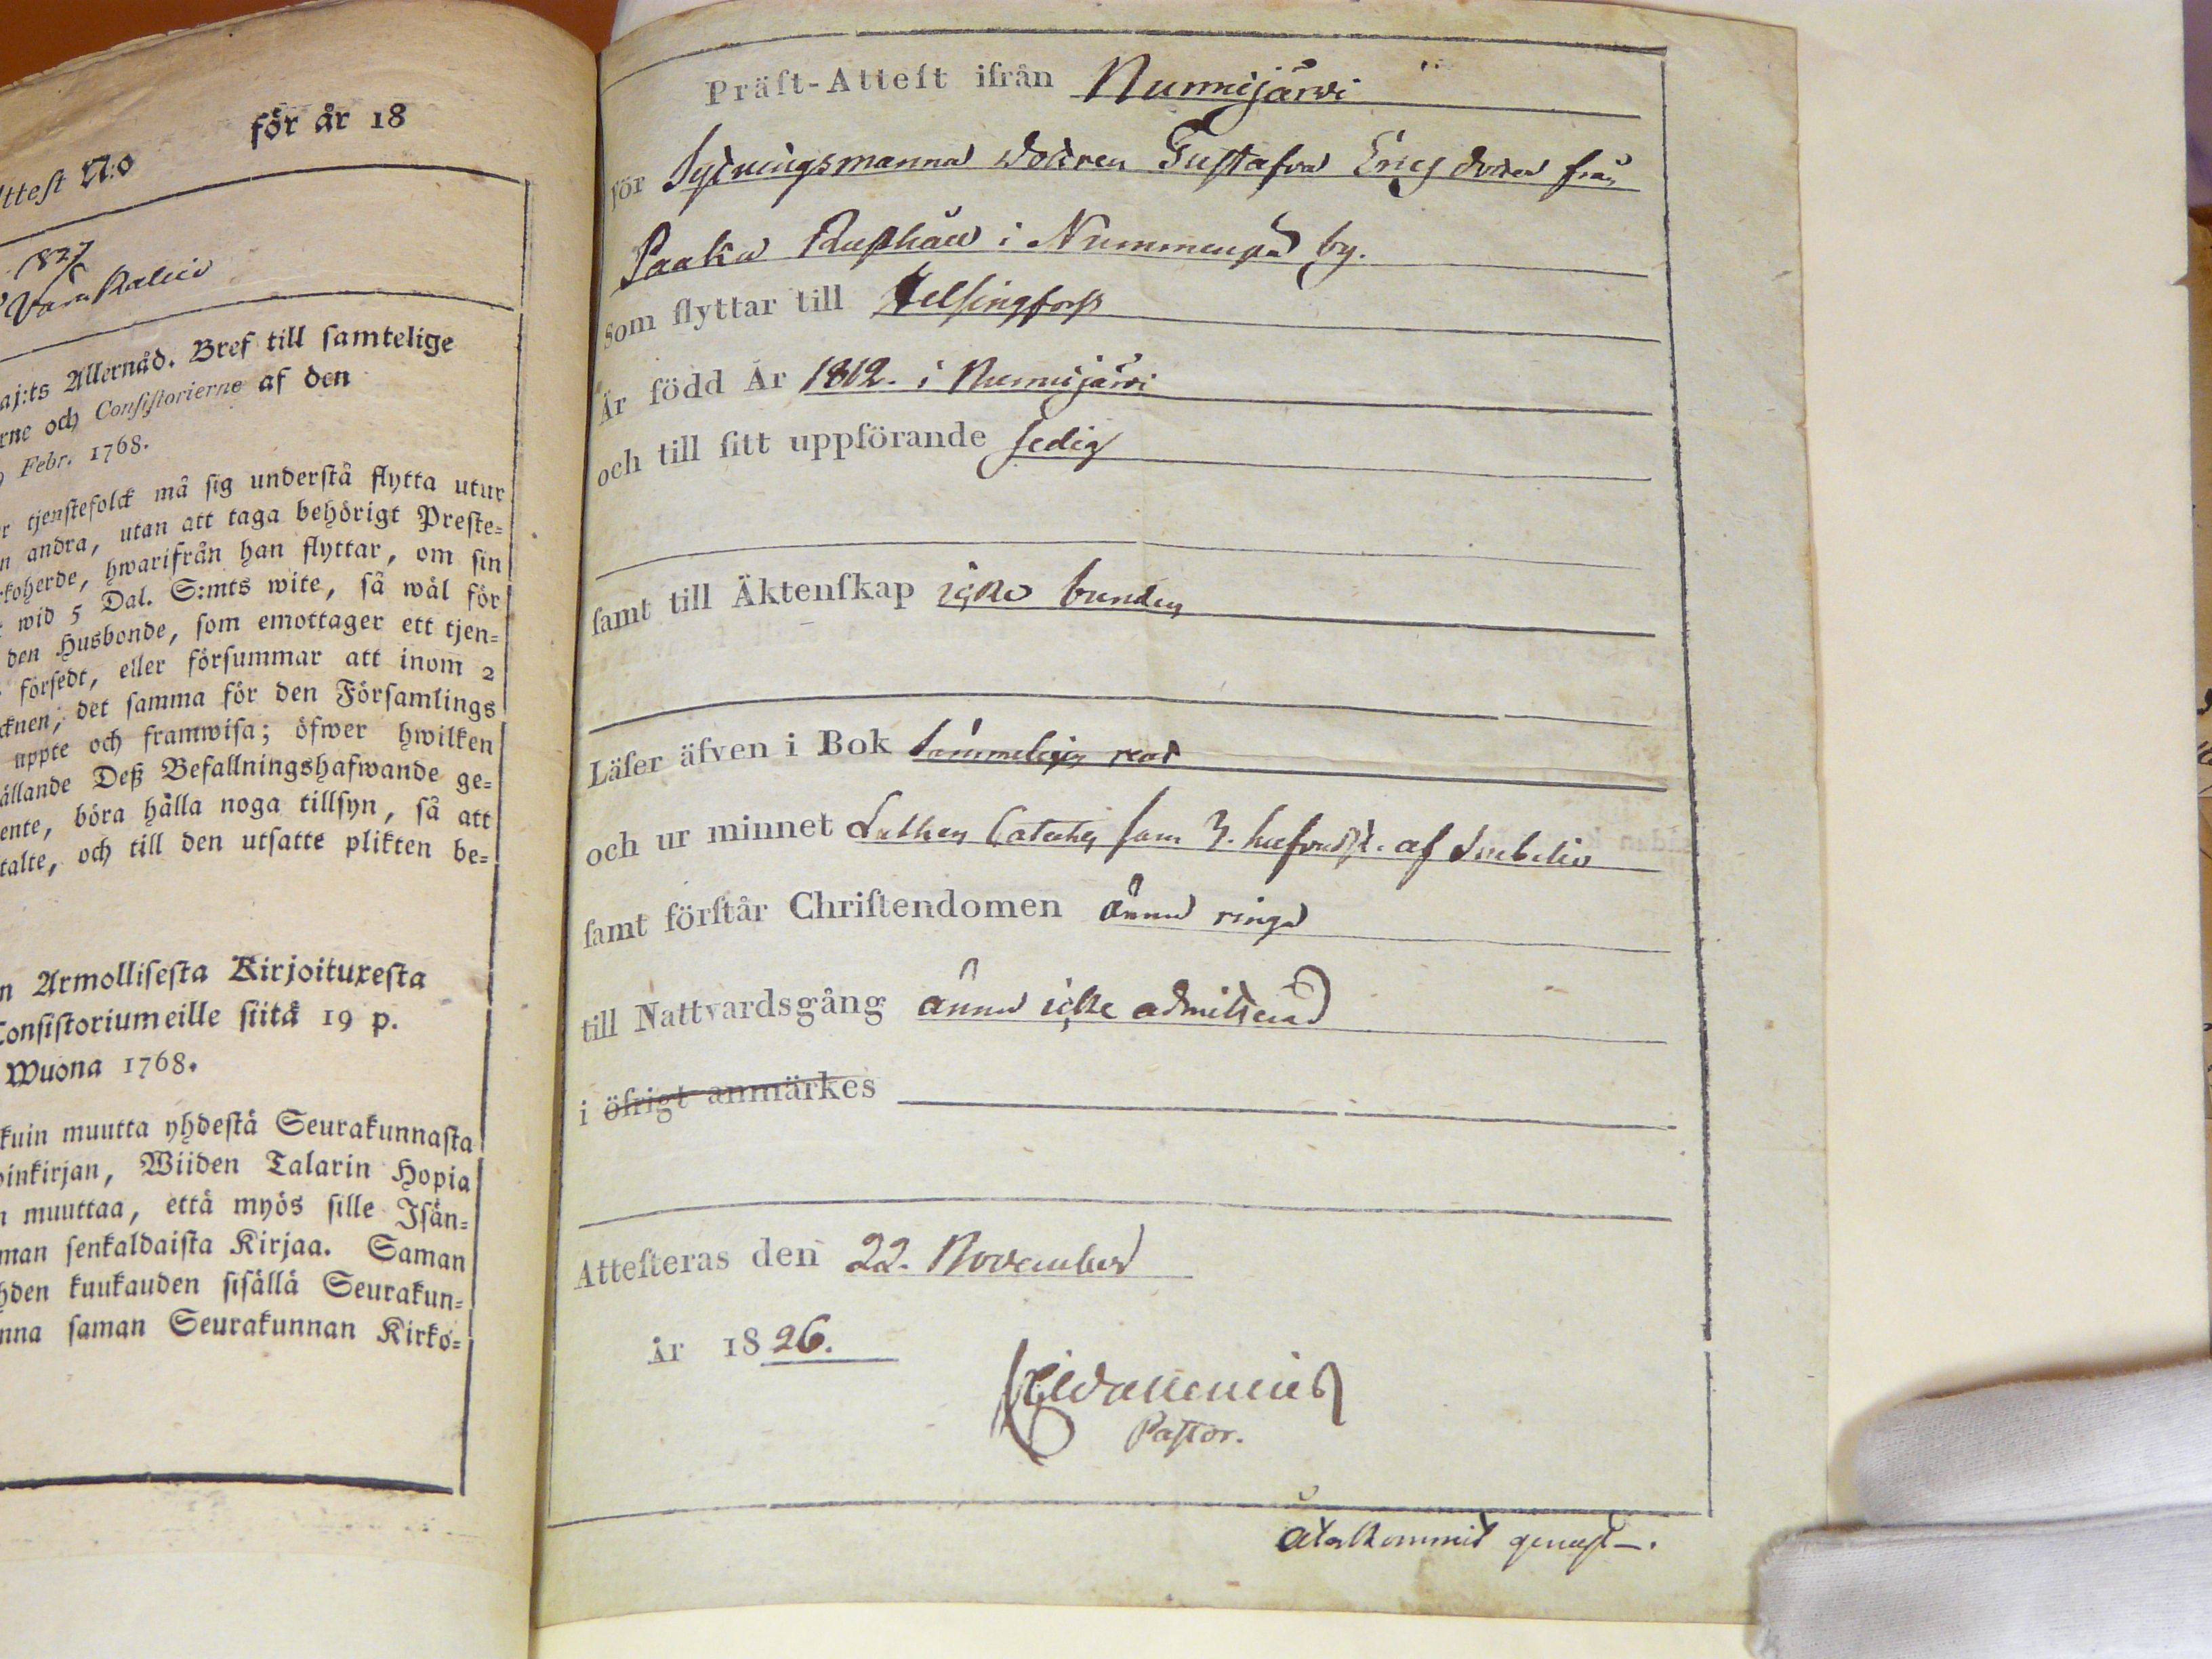 för år 18
ttest N:o
1827
aj:ts Allernåd. Bref till samtelige
rne och Consistorierne af den
9 Febr. 1768.
r tjenstefolck må sig understå flytta utur
n andra, utan att taga behörigt Preste=
koherde, hwarifrån han flyttar, om sin
wid 5 Dal. S:mts wite, så wäl för
den Husbonde, som emottager ett tjen=
försedt, eller försummar att inom 2
cknen, det samma för den Församlings
uppte och framwisa; öfwer hwilken
ällande Deß Befallningshafwande ge=
ente, böra hålla noga tillsyn, så att
talte, och till den utsatte plikten be=
n Armollisesta Kirjoituxesta
Consistoriumeille siitä 19 p.
Wuona 1768.
kuin muutta yhdestä Seurakunnasta
inkirjan, Wiiden Talarin Hopia
n muuttaa, että myös sille Isän=
man senkaldaista Kirjaa. Saman
hden kuukauden sisällä Seurakun=
nna saman Seurakunnan Kirko=
Präst-Attest ifrån Nurmijärvi
för Sytningsmanna dottren Gustafva Ericsdotter från
Paaka Rusthåll i Nummenpä by.
som flyttar till Helsingfors
Är född År 1812. i Nurmijärvi
och till sitt uppförande sedig
samt till Äktenskap icke bunden
Läser äfven i Bok
och ur minnet Luthers Cateches samt 3. hufvudst. af
samt förstår Christendomen ännu ringa
till Nattvardsgång ännu icke admitterad
i öfrigt anmärkes
Attesteras den 22. November
år 1826.
Pastor.
Återkommit genast.